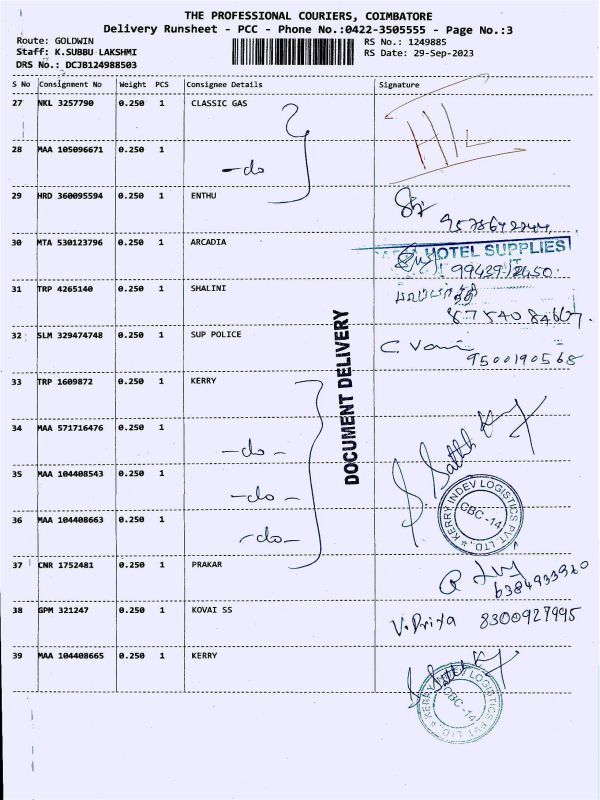 THE PROFESSIONAL COURIERS, COIMBATORE
Delivery Runsheet - PCC - Phone No.:0422-3505555 - Page No.:3
Route: GOLDWIN
Staff: K.SUBBU LAKSHMI
DRS No.: DCJB124988503
RS No.: 1249885
RS Date: 29-Sep-2023
S No Consignment No Weight PCS Consignee Details Signature
27 NKL 3257790 0.250 1 CLASSIC GAS
28 MAA 105096671 0.250 1 -do
29 HRD 360095594 0.250 1 ENTHU
30 MTA 530123796 0.250 1 ARCADIA
HOTEL SUPPLIES
31 TRP 4265140 0.250 1 SHALINI
32 SLM 329474748 0.250 1 SUP POLICE
9500190568
33 TRP 1609872 0.250 1 KERRY
34 MAA 571716476 0.250 1 -do-
35 MAA 104408543 0.250 1 -do-
36 MAA 104408663 0.250 1 -do-
KERRY INDEV LOGISTICS PVT. LTD.
CBC-14
37 CNR 1752481 0.250 1 PRAKAR
38 GPM 321247 0.250 1 KOVAI SS V.Priya 8300927995
39 MAA 104408665 0.250 1 KERRY
KERRY INDEV LOGISTICS PVT. LTD.
CBC-14
DOCUMENT DELIVERY